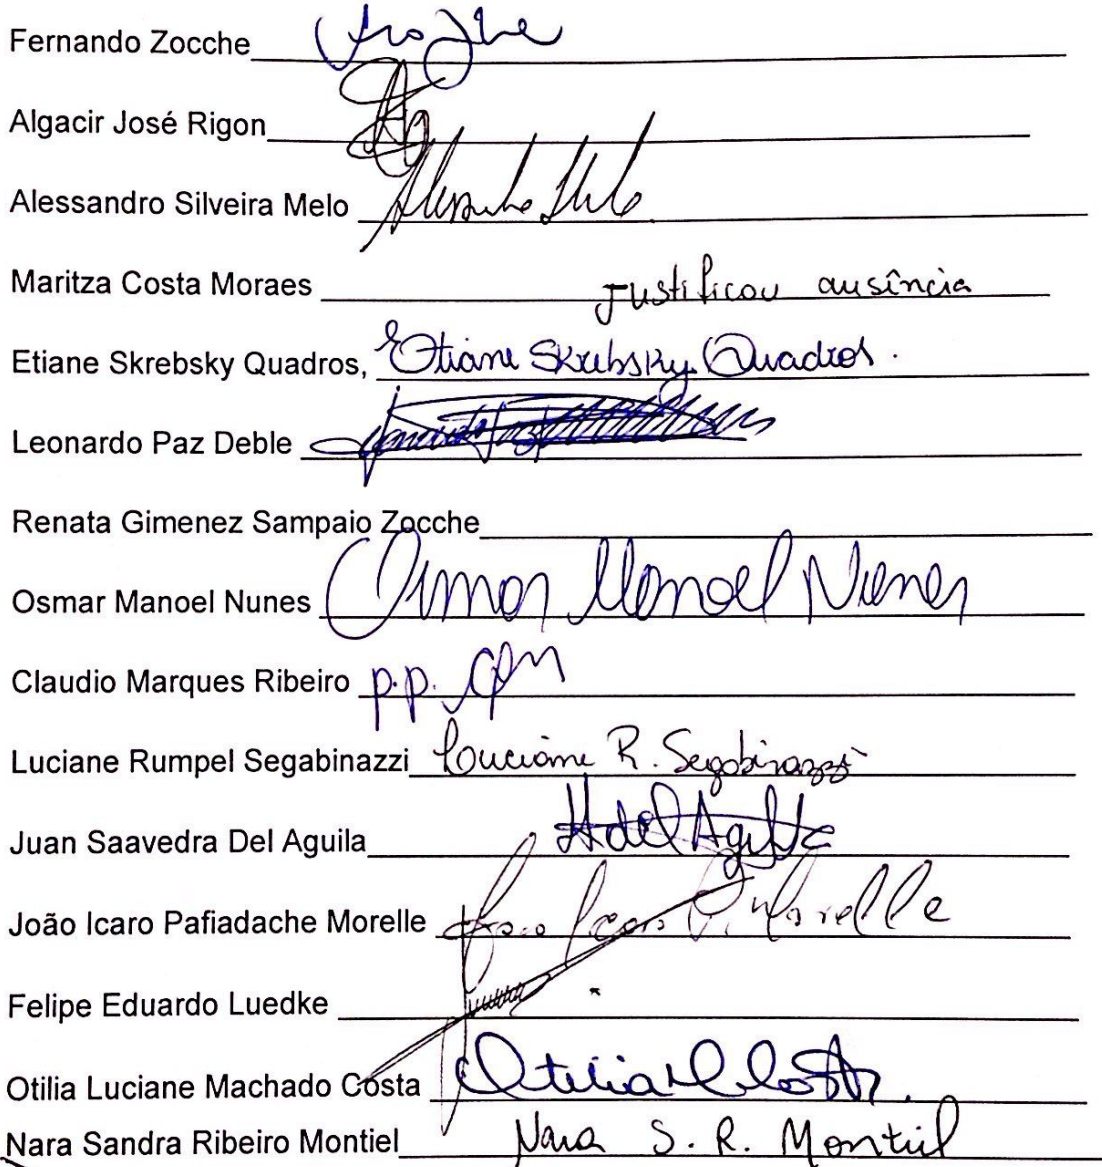 Fernando Zocche
Algacir José Rigon
Alessandro Silveira Melo
Maritza Costa Moraes Justificou ausência
Etiane Skrebsky Quadros, Etiane Skrebsky Quadros.
Leonardo Paz Deble
Renata Gimenez Sampaio Zocche
Osmar Manoel Nunes Osmar Manoel Nunes
Claudio Marques Ribeiro p.p.
Luciane Rumpel Segabinazzi Luciane R. Segabinazzi
Juan Saavedra Del Aguila
João Icaro Pafiadache Morelle João Icaro P. Morelle
Felipe Eduardo Luedke
Otilia Luciane Machado Costa
Nara Sandra Ribeiro Montiel Nara S. R. Montiel